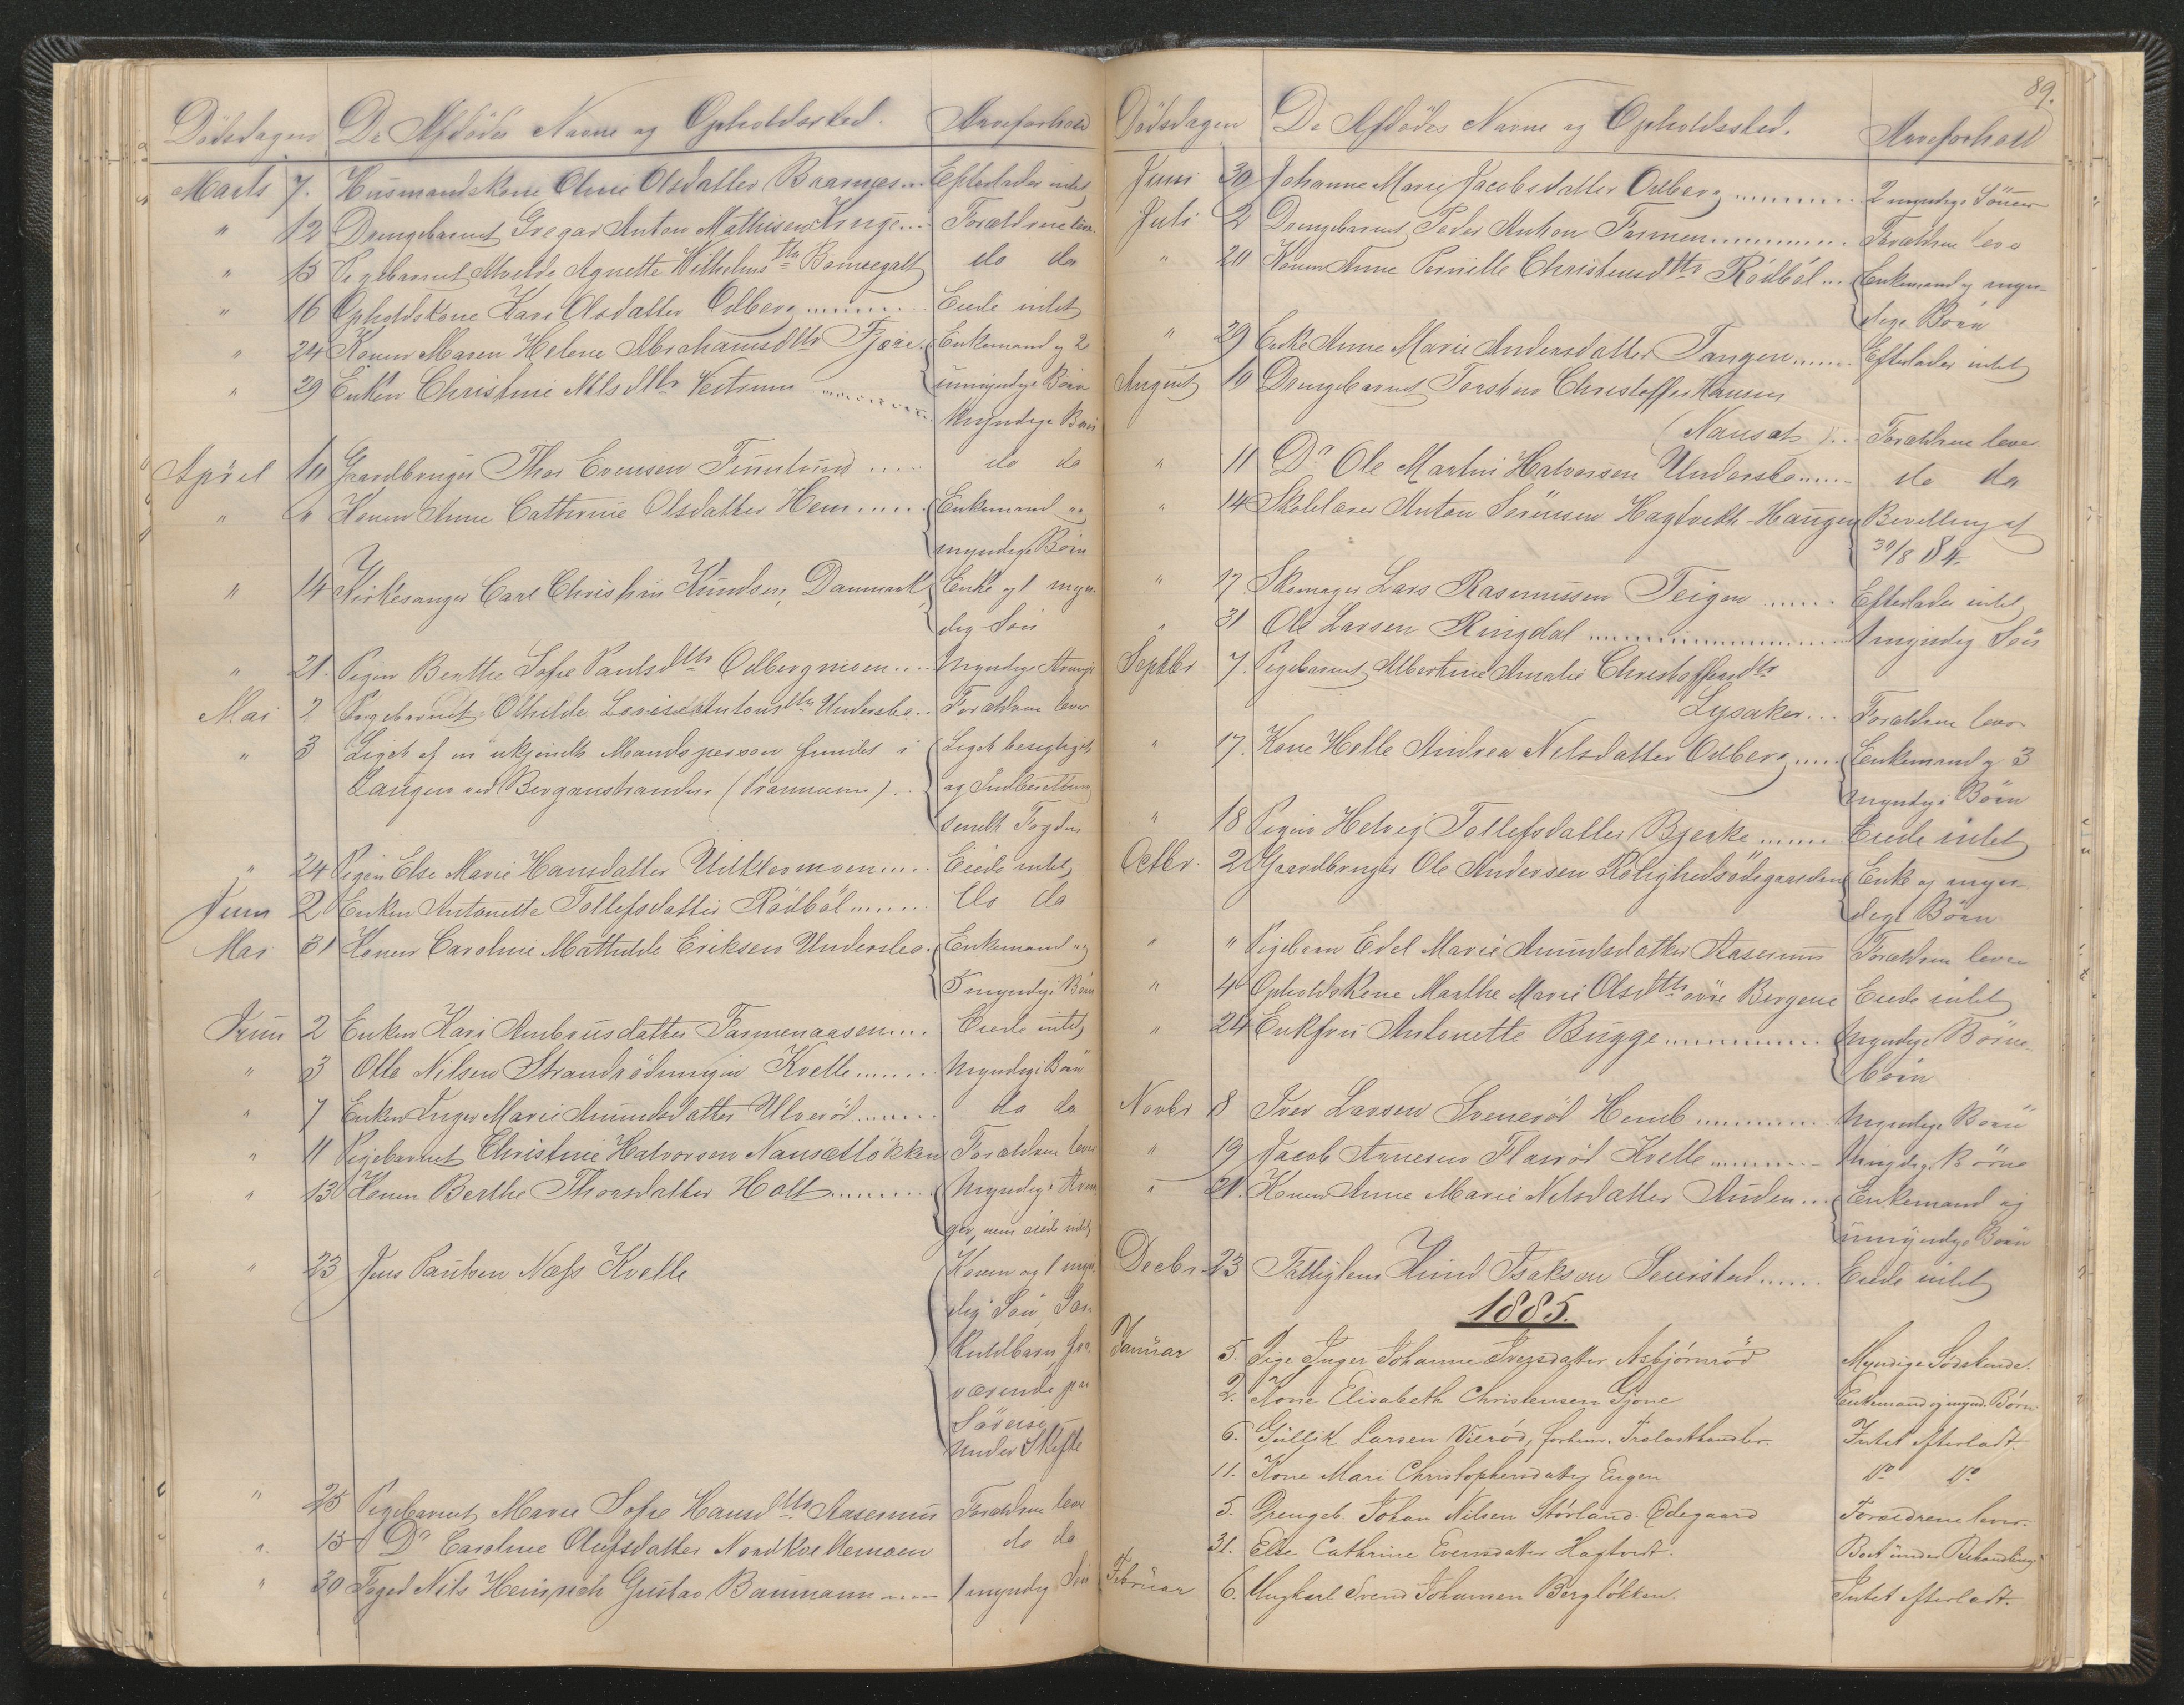 Dödsdagen De Afdödes Navne og Opholdssted. Arveforhold
Marts 7. Husmandskone Olene Olsdatter Baarnæs... Efterlader intet
" 12 Drengebarnet Gregar Anton Mathisen Kringe... Forældrene lever
" 13 Pigebarnet Alvilde Agnette Wilhelms dtr do do
" 16 Opholdskone Kari Olsdatter Odberg ........ Eiede intet
" 24 Konen Maren Helene Abrahamsdtr Fjære. Enkemand og 2
umyndige Børn
" 29 Enken Christine Nilsdtr Vestrum ........ Myndige Børn
April 10 Gaardbruger Thor Evensen ..... do do
" " Konen Anne Cathrine Olsdatter Hem..... Enkemand og
myndige Børn
" 14 Kirkesanger Carl Christian Knudsen, Danmark Enke og 1 myn-
dig Søn
" 21. Pigen Berthe Sofie Paulsdtr Odbergmoen.... Myndige Arvinger
Mai 2 Pigebarnet Othilde Lovise Antonsdtr Undersbo.. Forældrene lever
" 3 Liget af en ukjendt Mandsperson fundet i Liget besigtiget
Laugen ved Berganstranden (Prammann). og Indberetning
sendt Fogden
" 24 Pigen Else Marie Hansdatter ..... Eiede intet
Juni 2 Enken Antonette Tollefsdatter Rödböl........ do do
Mai 31 Konen Caroline Mathilde Eriksen Undersbo. Enkemand og
5 myndige Børn
Juni 2 Enken Kari Ambrusdatter Farmenaasen.... Eiede intet
" 3 Otto Nilsen Strandrödningen Kvelle....... Myndige Børn
" 7 Enken Inger Marie Amundsdatter Ulverød....... do do
" 11 Pigebarnet Christine Halvorsen Nansetløkken Forældrene lever
" 13 Konen Berthe Thorsdatter Holt......... Myndige Arvin-
ger, men eiede intet
" 23 Jens Paulsen Næss Kvelle Konen og 1 myn-
dig Søn, Sær-
kuldbarn, fra-
værende paa
Søreise
under Skifte
" 25 Pigebarnet Marie Sofie Hansdtr Aaserum Forældrene lever
" 15 Do Caroline Olufsdatter do do
" 30 Foged Nils Heinrich Gustav Baumann ..... 1 myndig Søn
89.
Dödsdagen De Afdödes Navne og Opholdssted. Arveforhold
Juni 30 Johanne Marie Jacobsdatter Odberg ......... 2 myndige Sønner
Juli 2 Drengebarnet Peder Anton Farmen............ Forældrene leve
" 20 Konen Anne Pernille Christensdtr Rödböl... Enkemand og myn-
dige Børn
" 29 Enke Anne Marie Andersdatter Tangen...... Efterlader intet
August 10 Drengebarnet Torsten Christoffer Hansen
(Nanset)... Forældrene lever
" 11 Do Ole Martin Halvorsen Undersbo...... do do
" 14 Skolelærer Anton Sörensen Hagtvedt-Haugen Bevilling af
30/8 84.
" 17 Skomager Lars Rasmussen Teigen ...... Efterlader intet
" 31 Ole Larsen Ringdal .................. 1 myndig Søn
Septbr 7. Pigebarnet Albertine Amalie Christoffersdtr
Lysaker... Forældrene lever
" 17. Kone Helle Andrea Nilsdatter Odberg..... Enkemand og 3
myndige Børn
" 18 Pigen Helvig Tollefsdatter Bjerke....... Eiede intet
Octbr. 2 Gaardbruger Ole Andersen Rolighedsødegaarden Enke og myn-
dige Børn
" " Pigebarn Edel Marie Amundsdatter Aaserum Forældrene lever
" 4 Opholdskone Marthe Marie Olsdtr övre Bergene Eiede intet
" 24 Enkefru Antonette Bugge............ Myndige Børne-
börn
Novbr 8 Iver Larsen Svenerød Hemb ........... Myndige Børn
" 19 Jacob Arnesen Flaarød Kvelle ......... Myndige Børn
" 21. Konen Anne Marie Nilsdatter Auden... Enkemand og
umyndige Børn
Decbr 23 Fattiglem Knud Isaksen Seierstad....... Eiede intet
1885.
Januar 5. Pige Inger Johanne Iversdatter Asbjörnröd Myndige Södskende.
2. Kone Elisabeth Christensen Gjone Enkemand og mynd. Børn
6. Gullik Larsen Vierød, forhenv. Trælasthandler. Intet efterladt.
11. Kone Mari Christophersdatter Eigen Do Do
5. Drengeb. Johan Nilsen Störland-Ödegaard Forældrene lever.
31. Else Cathrine Evensdatter Hagtvedt. Boet under Behandling.
Februar 6. Ungkarl Svend Johansen Bergløkken. Intet efterladt.